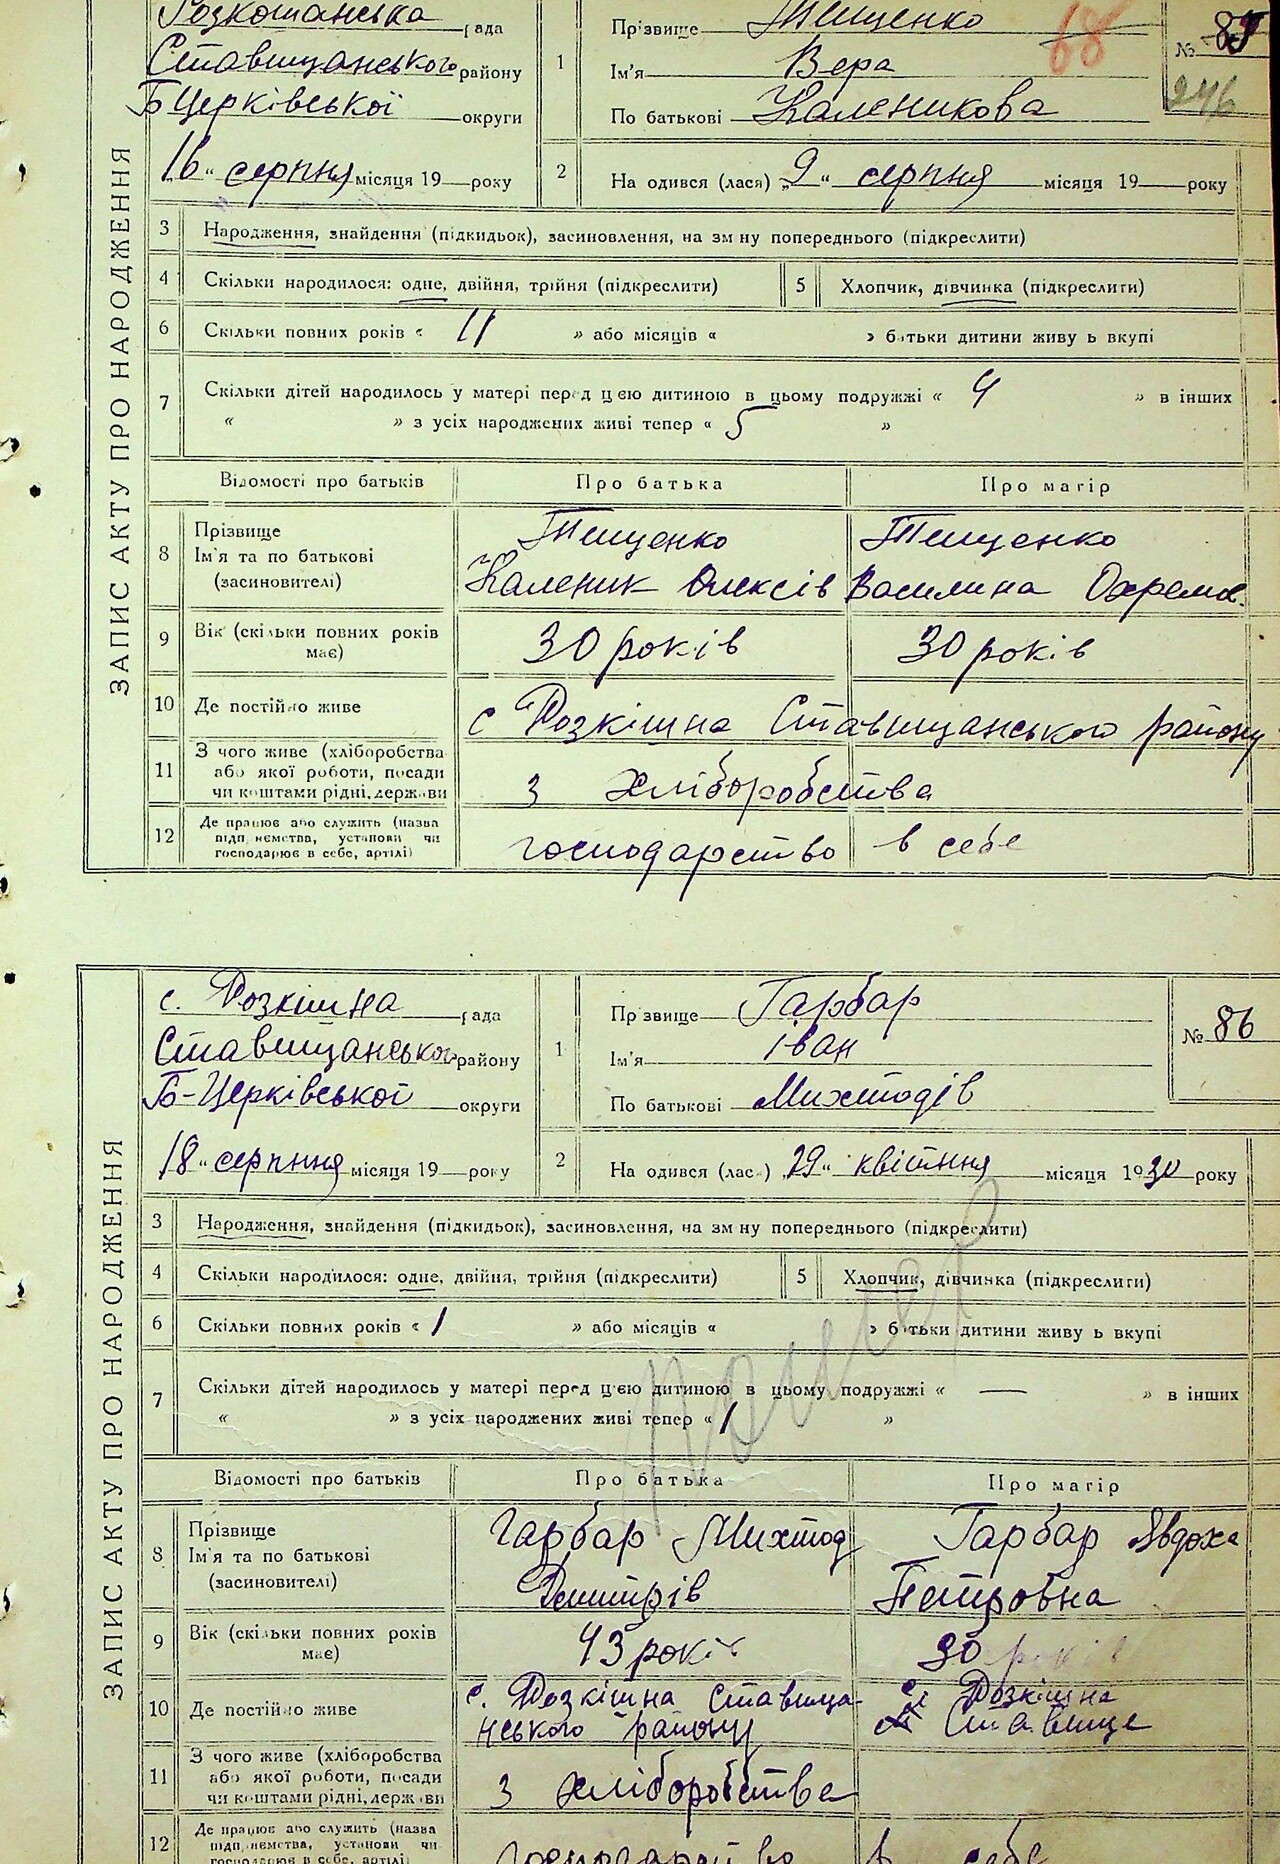 Розкошанська рада
Ставищанського району
Б Церківської округи
"16" серпня місяця 19 року
1
Прізвище Тищенко
Ім'я Вера
По батькові Каленикова
68
№
246
2
На одився (лася) "9" серпня місяця 19 року
ЗАПИС АКТУ ПРО НАРОДЖЕННЯ
3 Народження, знайдення (підкидьок), засиновлення, на зм ну попереднього (підкреслити)
4 Скільки народилося: одне, двійня, трійня (підкреслити)
5 Хлопчик, дівчинка (підкреслити)
6 Скільки повних років « 11 » або місяців « » батьки дитини живу ь вкупі
7 Скільки дітей народилось у матері перед цією дитиною в цьому подружжі « 4 » в інших
« » з усіх народжених живі тепер « 5 »
Відомості про батьків Про батька Про матір
8 Прізвище
Ім'я та по батькові
(засиновителі)
Тищенко
Каленик Олексів
Тищенко
Василина Охремов.
9 Вік (скільки повних років має)
30 років 30 років
10 Де постійно живе с Розкішна Ставищанського району
11 З чого живе (хліборобства
або якої роботи, посади
чи коштами рідні, держави
з хліборобства
12 Де працює або служить (назва
підп иємства, установи чи
господарює в себе, артілі)
господарство в себе
с. Розкішна рада
Ставищанського району
Б-Церківської округи
"18" серпння місяця 19 року
1
Прізвище Гарбар
Ім'я Іван
По батькові Михтодів
№ 86
2
На одився (лася) "29" квітння місяця 1930 року
ЗАПИС АКТУ ПРО НАРОДЖЕННЯ
3 Народження, знайдення (підкидьок), засиновлення, на зм ну попереднього (підкреслити)
4 Скільки народилося: одне, двійня, трійня (підкреслити)
5 Хлопчик, дівчинка (підкреслити)
6 Скільки повних років « 1 » або місяців « » батьки дитини живу ь вкупі
7 Скільки дітей народилось у матері перед цією дитиною в цьому подружжі « — » в інших
« » з усіх народжених живі тепер « 1 »
Відомості про батьків Про батька Про матір
8 Прізвище
Ім'я та по батькові
(засиновителі)
Гарбар Михтод
Дмитрів
Гарбар Явдоха
Петровна
9 Вік (скільки повних років має)
43 років 30 років
10 Де постійно живе
с. Розкішна Ставища-
нського району
Розкішна
Ставище
11 З чого живе (хліборобства
або якої роботи, посади
чи коштами рідні, держави
з хліборобства
12 Де працює або служить (назва
підп иємства, установи чи
господарює в себе, артілі)
господарство в себе